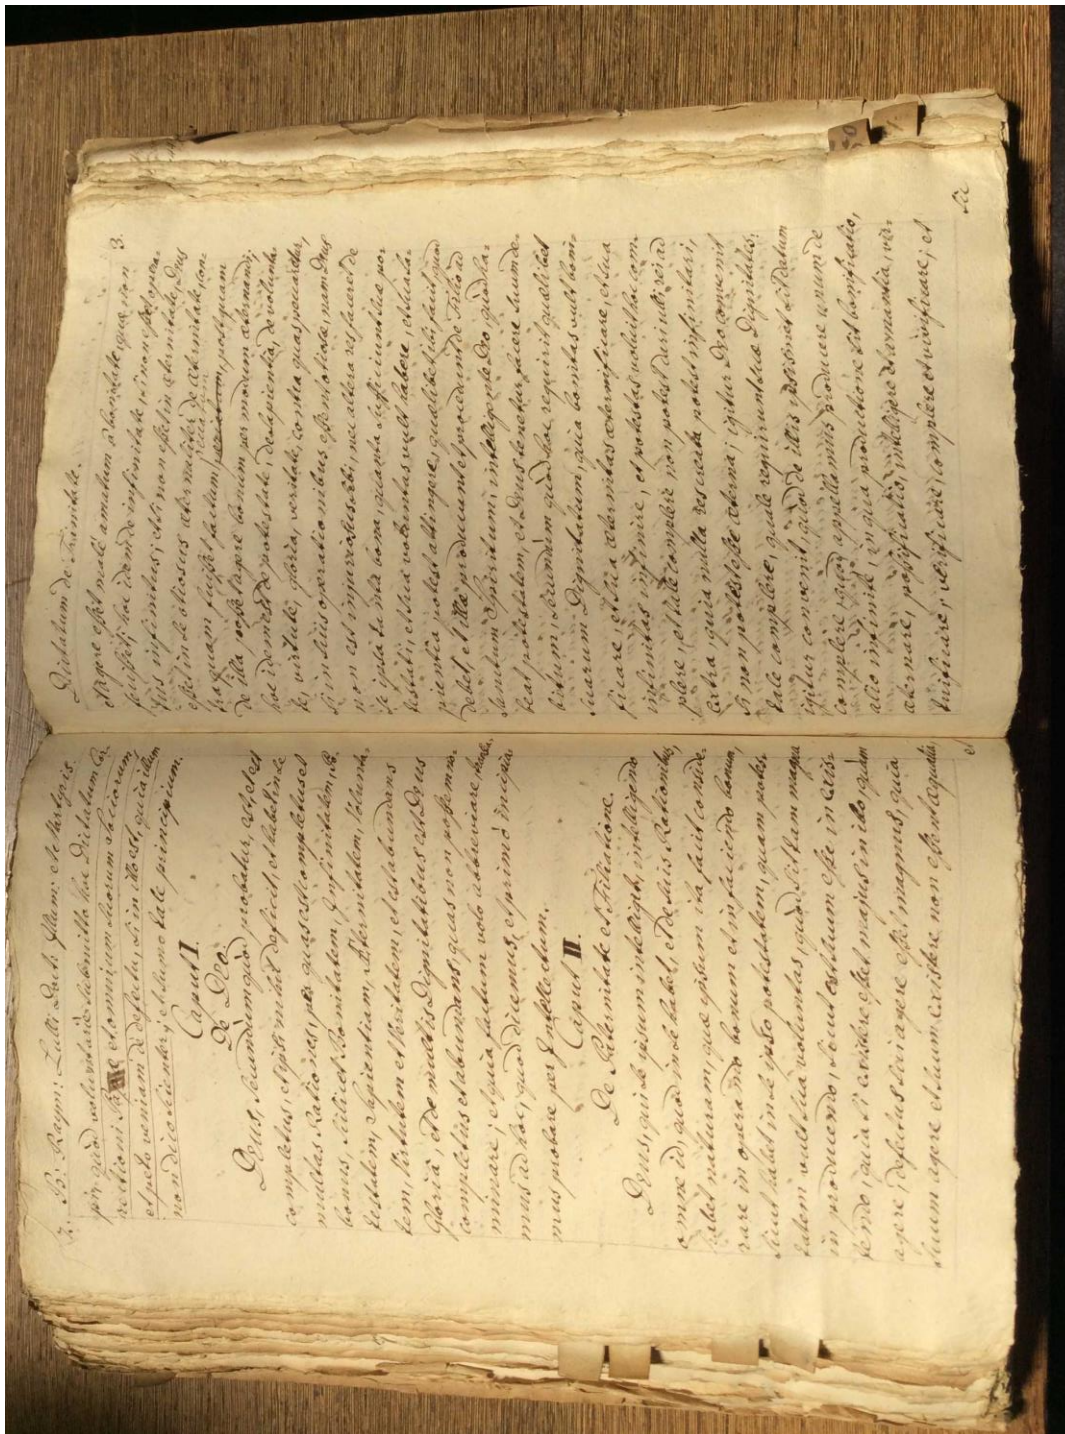 2. B: Raym: Lulli Doct: Illum: et Martyris
pir, quòd voluntariè submitto hoc Dictatum Cor-
rectioni et omnium suorum Sociorum
et peto veniam de defectu, si in illo est, quia illum
non dico scienter, et sumo tale principium.
Caput I.
De Deo.
Deus, secundùm quòd probatur, est, et est
completus, et ipsi nihil deficit, et habet in se
multas Rationes, per quas est completus et
bonus, scilicet Bonitatem, Infinitatem, Po-
testatem, Sapientiam, Æternitatem, Volunta-
tem, Virtutem et Veritatem, et est abundans
Gloriâ, et de multis Dignitatibus est Deus
completus et abundans, quas non possem no-
minare; et quia factum volo abbreviare,
mus ad hoc, quod dicemus, et primò incipia-
mus probare per Intellectum.
Caput II.
De Paternitate et Filiatione.
Deus, qui se ipsum intelligit, intelligendo
omne id, quod in se habet, et de suis Rationibus,
habet naturam, quæ ipsum ita facit conside-
rare in operando bonum et in faciendo bonum,
sicut habet in se ipso potestatem, quam potes-
tatem vult sua voluntas, quòd sit tam magna
in producendo, sicut est suum esse in exis-
tendo, quia si existere esset majus in illo, quàm
agere, defectus sui agere esset magnus, quia
suum agere et suum existere non essent æqualia,
et
Dictatum de Trinitate. 3.
et agere esset malè amatum à bonitate, quæ non
fecisset; hoc idem de infinitate, si non esset opera-
tus infinitus; et si non esset in æternitate, Deus
esset in se otiosus æternaliter de æternitate, con-
tra quam fuisset factum, postquam
de illa posset agere bonum per modum æternandi;
hoc idem est de potestate, de sapientia, de volunta-
te, virtute, gloria, veritate, contra quas peccaretur,
si in suis operationibus essent otiosæ, nam Deus
non est injuriosus sibi, nec altera res faceret de
se ipsa tanta bona, quanta sufficiunt suæ po-
testati, et sua voluntas vult habere, et sua sa-
pientia potest attingere, qualibet sibi facit, quod
debet, et illa producunt et procedunt de Filio ad
Sanctum Spiritum, intelligente Deo, quòd ha-
beat potestatem, et Deus tenetur facere suum de-
bitum, secundùm quòd hoc requirit quælibet
suarum Dignitatum, quia bonitas vult boni-
ficare, et sua æternitas æternificare, et sua
infinitas infinire, et potestas voluit hoc com-
plere, et tale complere non potest dari ulli rei ad
extra, quia nulla res creata potest infinitari,
si non potest esse æterna; igitur Deo convenit
tale complere, quale requirunt suæ Dignitates;
igitur convenit, quòd de illis ipsismet sit datum
complere, quod appellamus producere unum de
alio infinitè, in qua productione sit bonificatio,
æternare, possificatio, intelligere et amantia, vir-
tuificare, verificare, complere et vivificare, et
sic